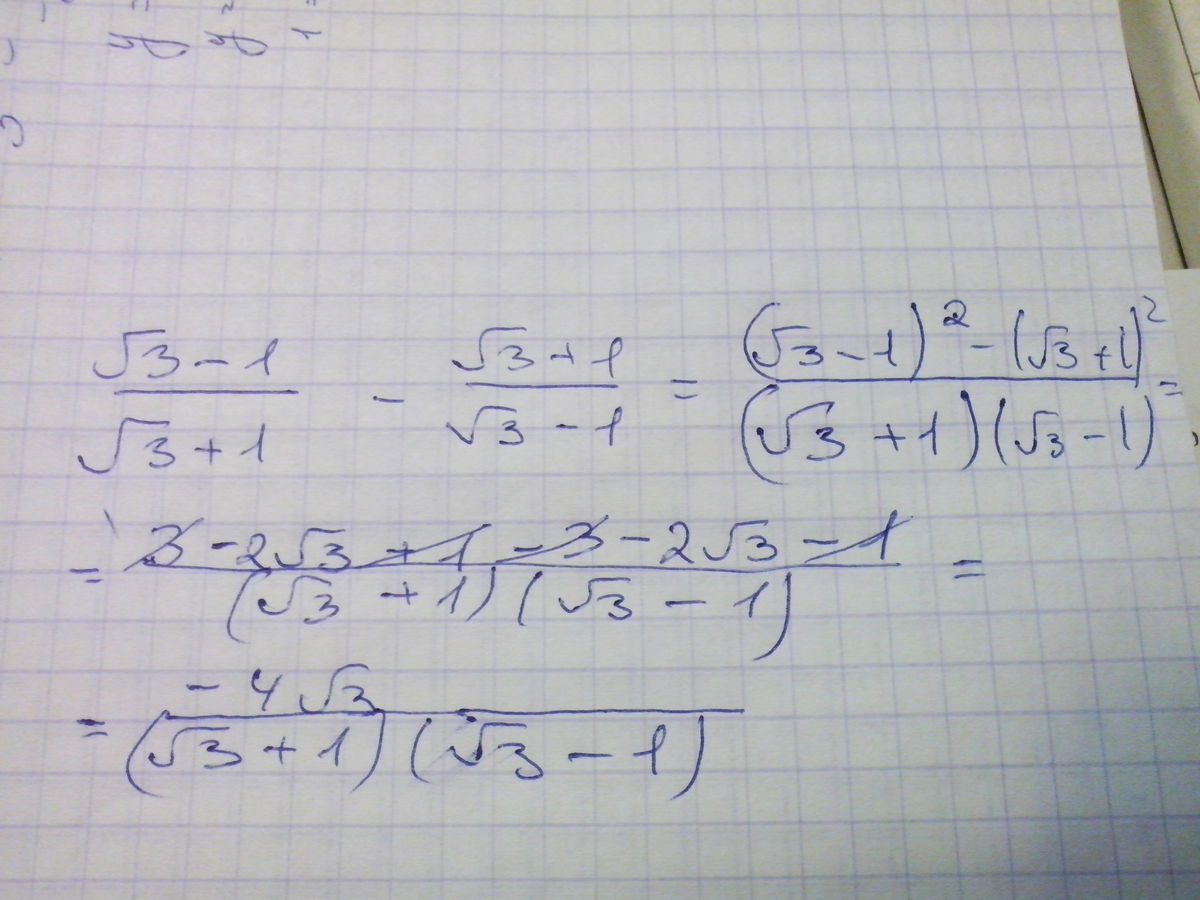 (√3 - 1)/(√3 + 1) - (√3 + 1)/(√3 - 1) = ((√3 - 1)² - (√3 + 1)²)/((√3 + 1)(√3 - 1)) =
= (3 - 2√3 + 1 - 3 - 2√3 - 1)/((√3 + 1)(√3 - 1)) =
= (-4√3)/((√3 + 1)(√3 - 1))